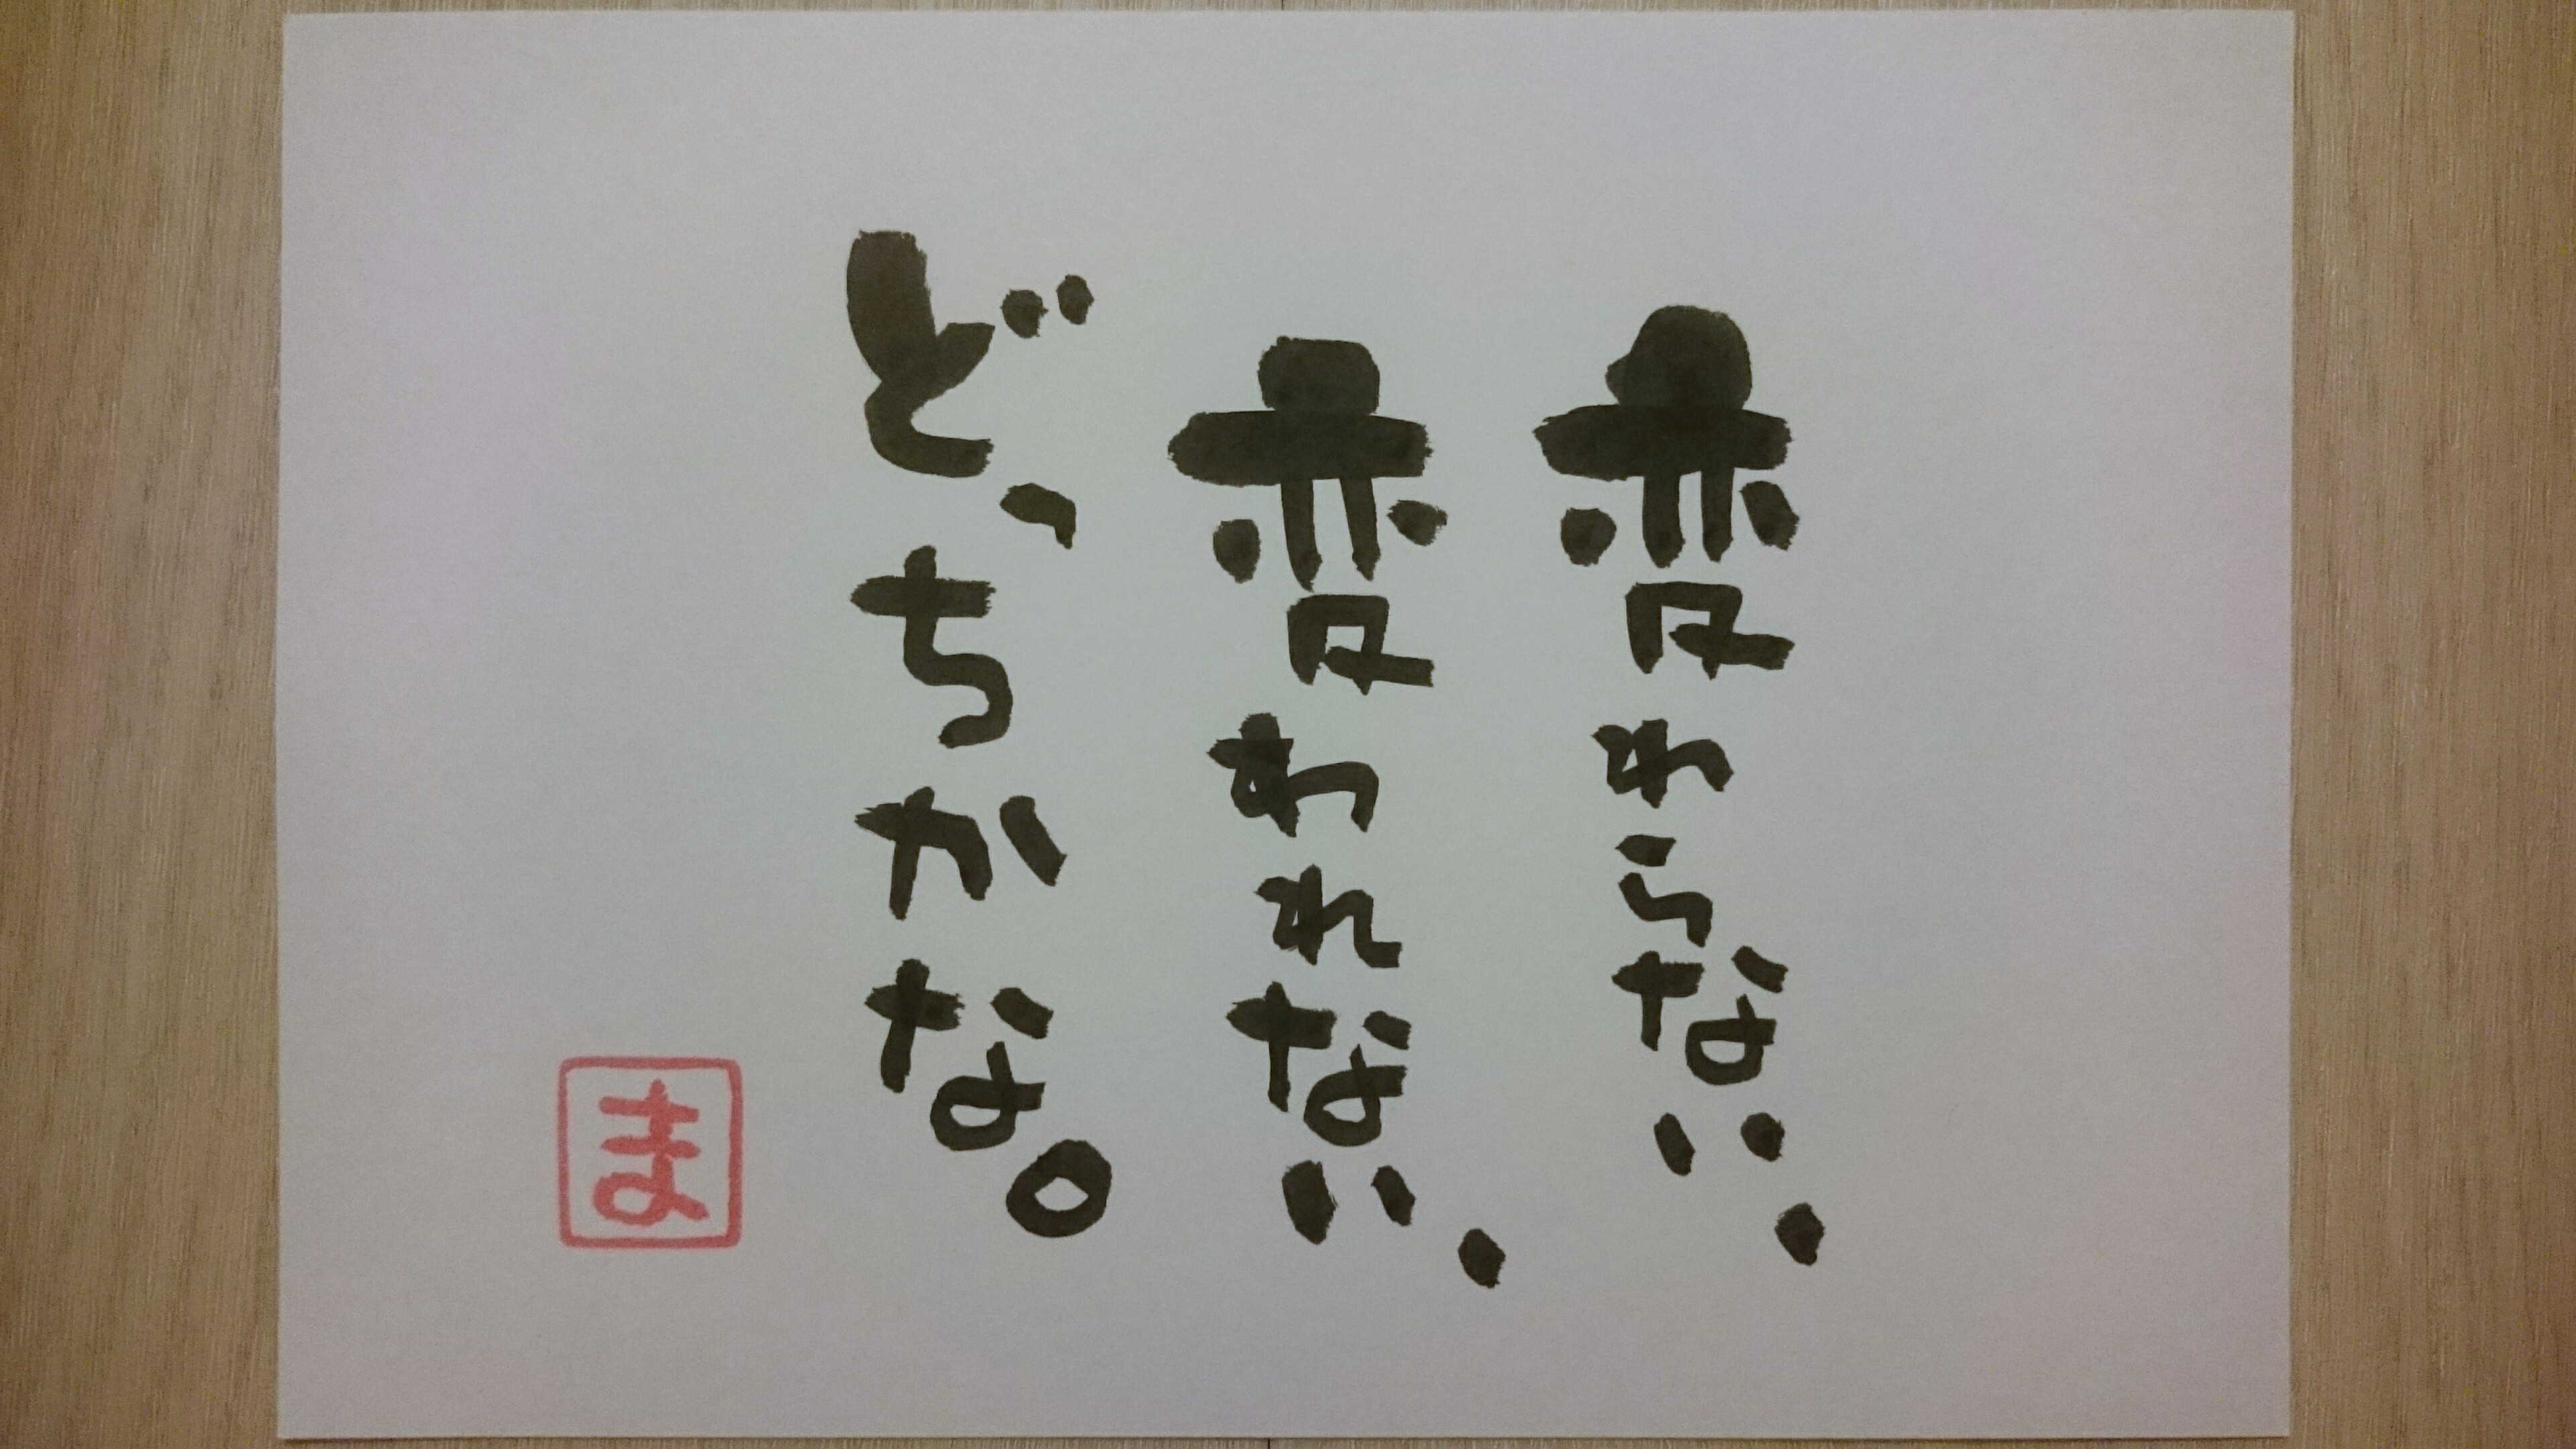 変わらない、
変われない、
どっちかな。
ま